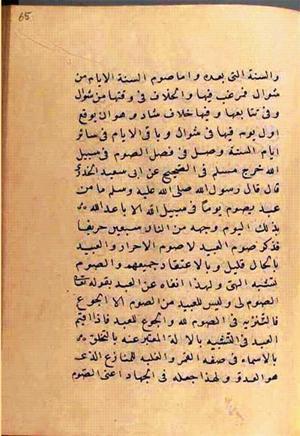 65
والسنة التى بعده واما صوم الستة الايام من
شوال فرغب فيها والخلاف فى وقتها من شوال
وفى تتابعها وفيها خلاف شاذ وهو ان يوقع
اول يوم فيها فى شوال وباقى الايام فى سائر
ايام السنة وصل فى فضل الصوم فى سبيل
الله خرج مسلم فى الصحيح عن ابى سعيد الخدرى
قال قال رسول الله صلى الله عليه وسلم ما من
عبد يصوم يوما فى سبيل الله الا باعد الله
بذلك اليوم وجهه من النار سبعين خريفا
فذكر صوم العبد لا صوم الاحرار والعبيد
بالحال قليل وبالاعتقاد جميعهم والصوم
تشبيه الهى ولهذا نفاه عن العبد بقوله تعا
الصوم لى وليس للعبد من الصوم الا الجوع
فالتنزيه فى الصوم لله والجوع للعبد فاذا اقيم
العبد فى التشبيه بالاله المعبر عنه بالتخلق
بالاسماء فى صفة القهر والغلبة للمنازع الذى
هو العدو ولهذا جعله فى الجهاد اعنى الصوم